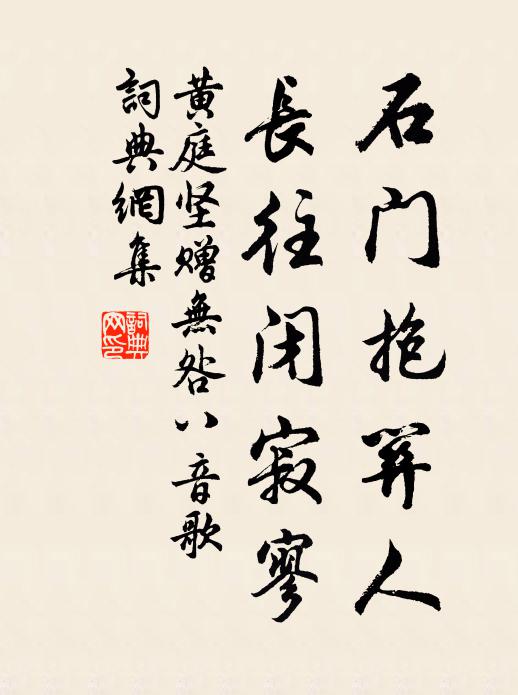 石门抱关人
長往闭寂寥
黄庭坚赠無咎八音歌
詞典網集
詞典
网印